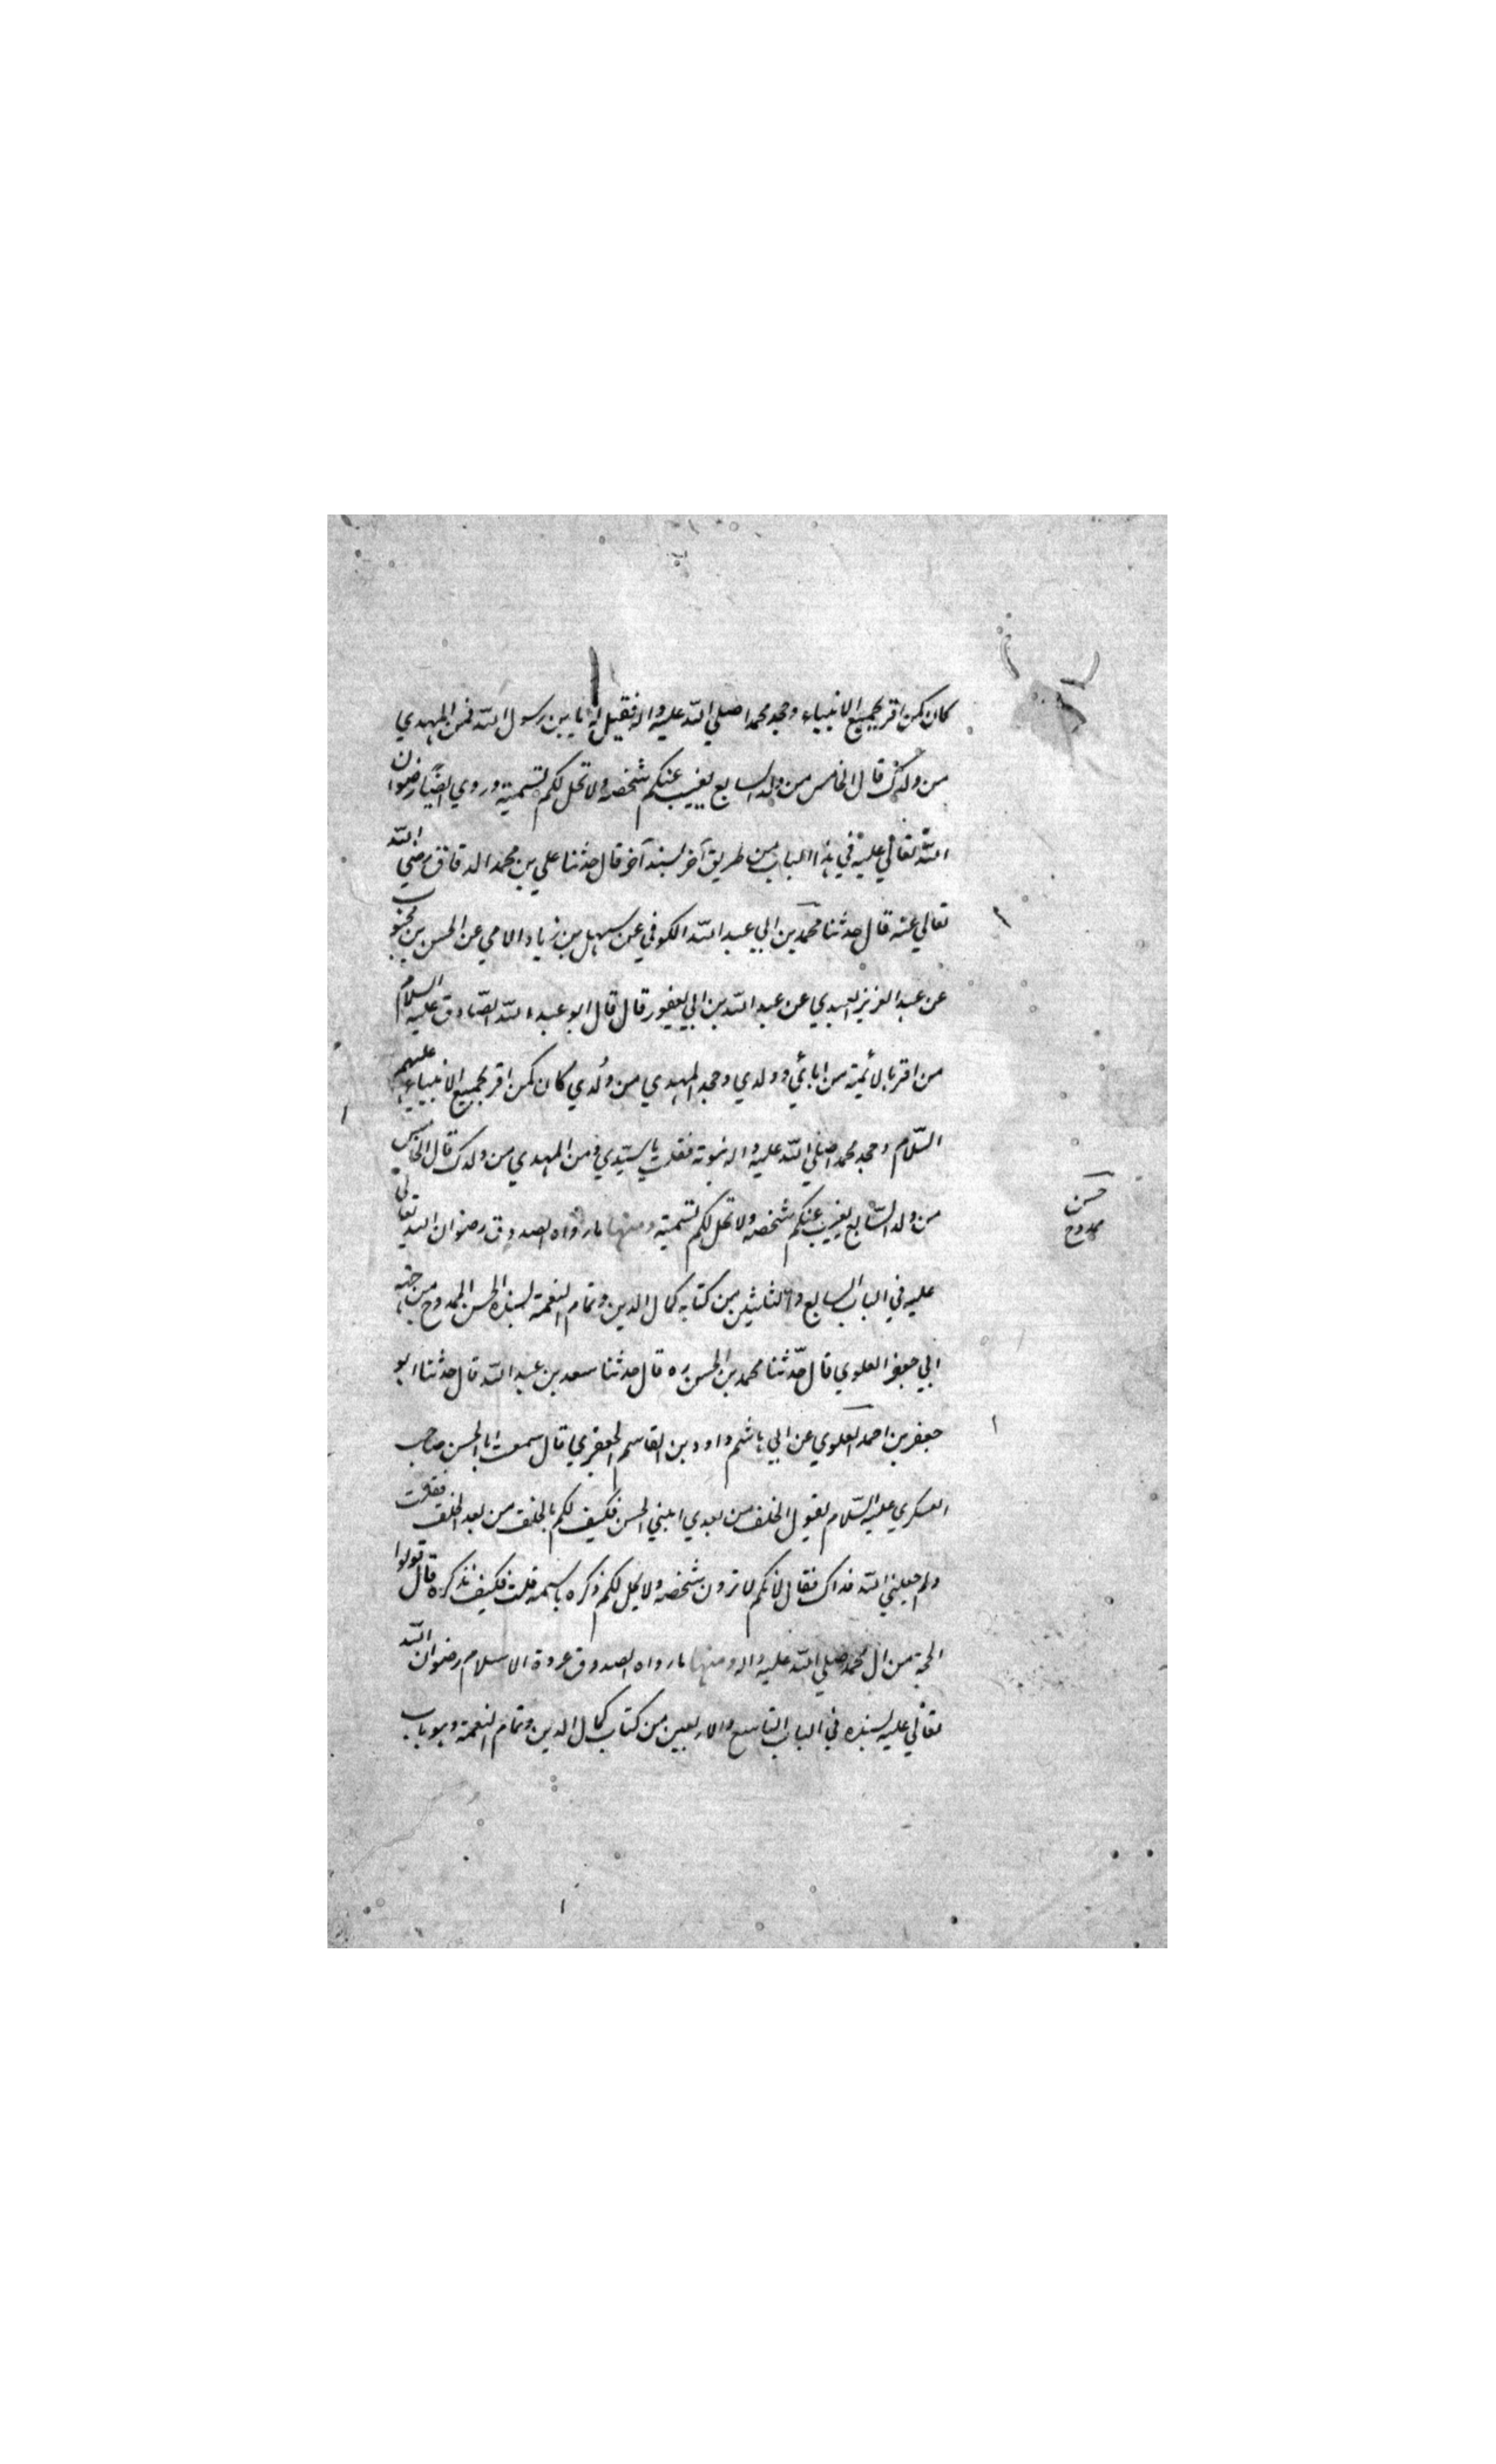 كان كمن اقر بجميع الانبياء وجحد محمدا صلي الله عليه واله فقيل له يا بن رسول الله فمن المهدي
من ولدك قال الخامس من ولد السابع يغيب عنكم شخصه ولا تحل لكم تسميته وروي ايضا رضوان
الله تعالي عليه في هذا الباب من طريق آخر بسند آخر قال حدثنا علي بن محمد الدقاق رضي الله
تعالي عنه قال حدثنا محمد بن ابي عبد الله الكوفي عن سهل بن زياد الادمي عن الحسن بن محبوب
عن عبد العزيز العبدي عن عبد الله بن ابي يعفور قال قال ابو عبد الله الصادق عليه السلام
من اقر بالائمة من ابائي وولدي وجحد المهدي من ولدي كان كمن اقر بجميع الانبياء عليهم
السلام وجحد محمدا صلي الله عليه واله نبوته فقلت يا سيدي فمن المهدي من ولدك قال الخامس
من ولد السابع يغيب عنكم شخصه ولا تحل لكم تسميته ومنها ما رواه الصدوق رضوان الله تعالي
حسن
ممدوح
عليه في الباب السابع والثلثين من كتابه كمال الدين وتمام النعمة بسنده الحسن الممدوح من جهة
ابي جعفر العلوي قال حدثنا محمد بن الحسن ره قال حدثنا سعد بن عبد الله قال حدثنا ابو
جعفر بن احمد العلوي عن ابي هاشم داود بن القاسم الجعفري قال سمعت ابا الحسن صاحب
العسكري عليه السلام يقول الخلف من بعدي ابني الحسن فكيف لكم بالخلف من بعد الخلف فقلت
ولم جعلني الله فداك فقال لانكم لا ترون شخصه ولا يحل لكم ذكره باسمه قلت فكيف نذكره قال قولوا
الحجة من ال محمد صلي الله عليه واله ومنها ما رواه الصدوق عروة الاسلام رضوان الله
تعالي عليه بسنده في الباب التاسع والاربعين من كتاب كمال الدين وتمام النعمة وهو باب